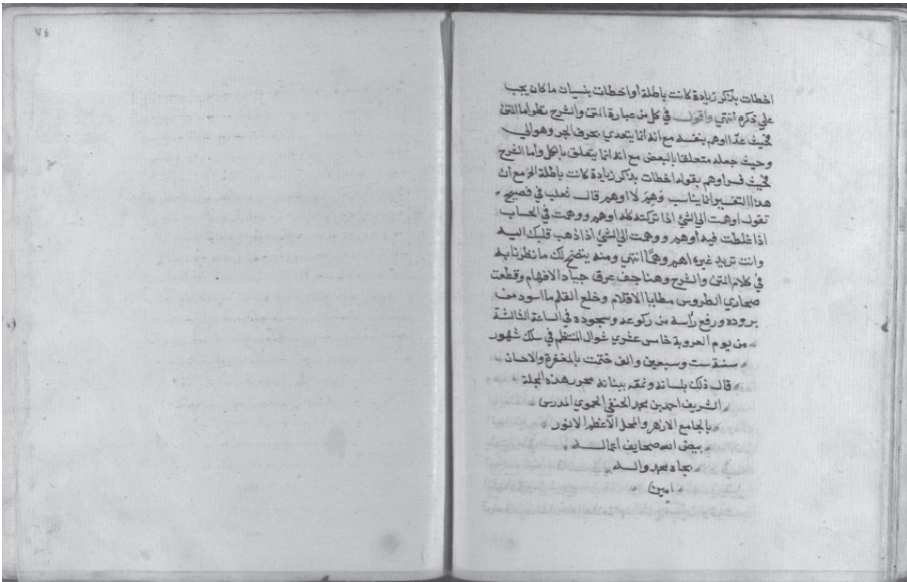 ٧٤
اخطات بذكر زيادة كانت باطلة أو اخطات بنسيان ما كان يجب
علي ذكره انتهي واقول في كل من عبارة المتن والشرح نظر اما المتن
فحيث عدّا اوهم بنفسه مع انه انما يتعدي بحرف الجر وهو الي
وحيث جعله متعلقا بالبعض مع انه انما يتعلق بالكل واما الشرح
فحيث فسر اوهم بقوله اخطات بذكر زيادة كانت باطلة الخ مع ان
هذا التفسير انما يناسب وَهِمَ لا اوهم قال ثعلب في فصيحه
تقول اوهمت الي الشئ اذا تركته كله اوهم ووهمت في الحساب
اذا غلطت فيه أوهم ووهمت الي الشئ اذا ذهب قلبك اليه
وانت تريد غيره اهم وهمًا انتهى ومنه يتضح لك ما نظرنا به
في كلام المتن والشرح وهنا جف عرق جياد الافهام وقطعت
صحاري الطروس مطايا الاقلام وخلع القلم ما اسود من
بروده ورفع رأسه من ركوعه وسجوده في الساعة الثالثة
من يوم العروبة خامس عشري شوال المنتظم في سلك شهور
سنة ست وسبعين والف ختمت بالمغفرة والاحسان
قال ذلك بلسانه ونمقه ببنانه محرر هذه المجلة
الشريف احمد بن محمد الحنفي الحموي المدرس
بالجامع الازهر والمحل الأعظم الانور
بيض الله صحايف اعماله
بجاه محمد واله
امين